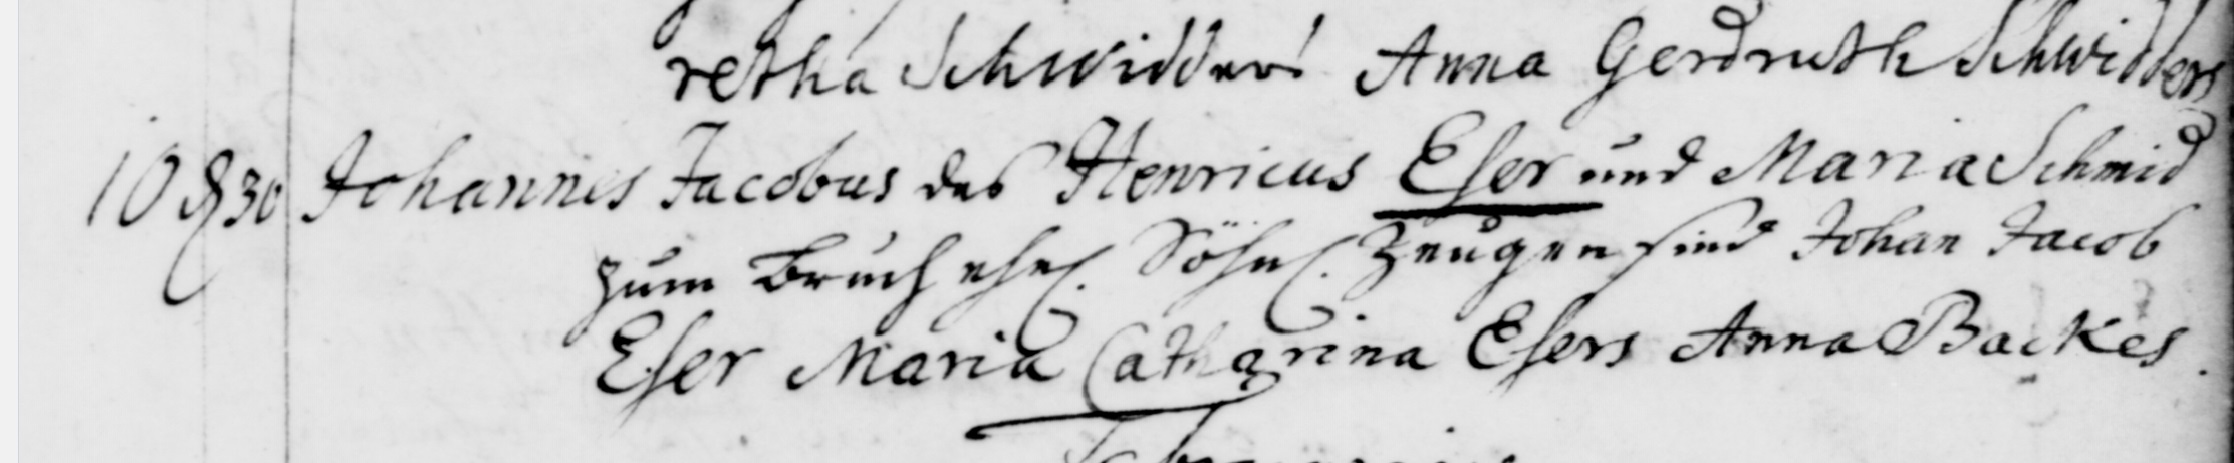 retha Schwidders Anna Gerdruth Schwidders
10 30 Johannes Jacobus des Henricus Eser und Maria Schmid
zum Bruch ehel. Söhnl. Zeugen sind Johan Jacob
Eser Maria Catharina Esers Anna Backes.